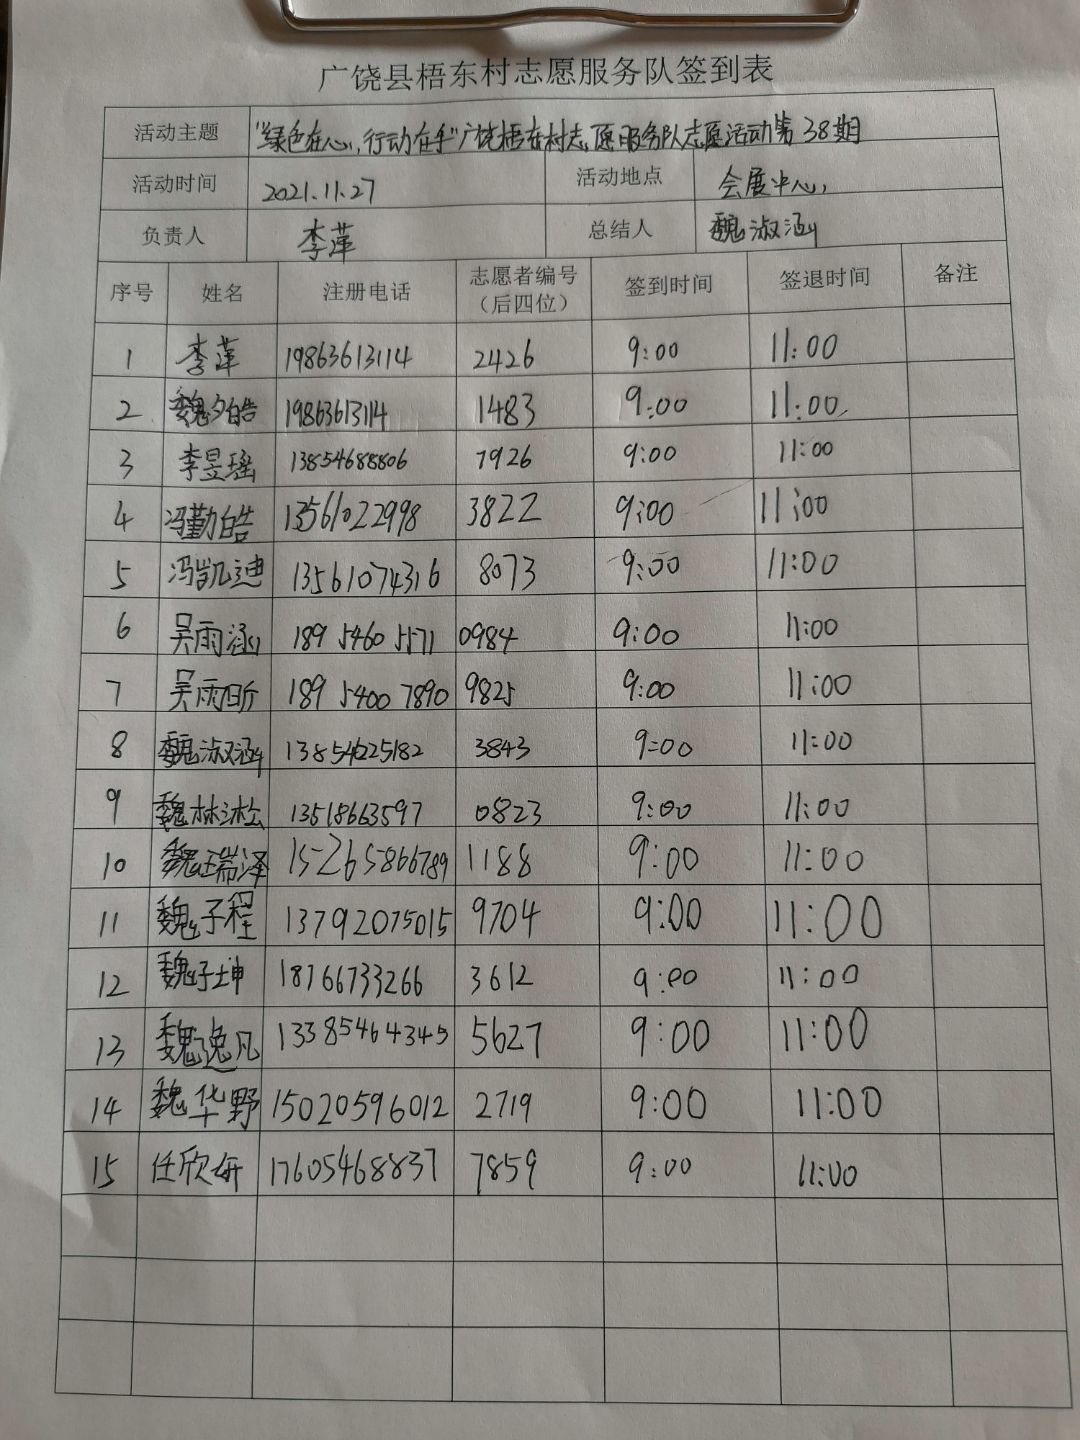 广饶县梧东村志愿服务队签到表
活动主题 "绿色在心,行动在手"广饶梧东村志愿服务队志愿活动第38期
活动时间 2021.11.27 活动地点 会展中心
负责人 李萍 总结人 魏淑涵
序号 姓名 注册电话 志愿者编号（后四位） 签到时间 签退时间 备注
1 李萍 19863613114 2426 9:00 11:00
2 魏夕皓 19863613114 1483 9:00 11:00
3 李昱瑶 13854688806 7926 9:00 11:00
4 冯勤皓 13561022998 3822 9:00 11:00
5 冯凯迪 13561074316 8073 9:00 11:00
6 吴雨涵 189 5460 5571 0984 9:00 11:00
7 吴雨昕 189 5400 7890 9825 9:00 11:00
8 魏淑涵 13854625182 3843 9:00 11:00
9 魏林淞 13518663597 0823 9:00 11:00
10 魏瑞泽 15265866789 1188 9:00 11:00
11 魏子程 13792075015 9704 9:00 11:00
12 魏子坤 18766733266 3612 9:00 11:00
13 魏逸凡 13385464345 5627 9:00 11:00
14 魏华野 15020596012 2719 9:00 11:00
15 任欣妍 17605468837 7859 9:00 11:00